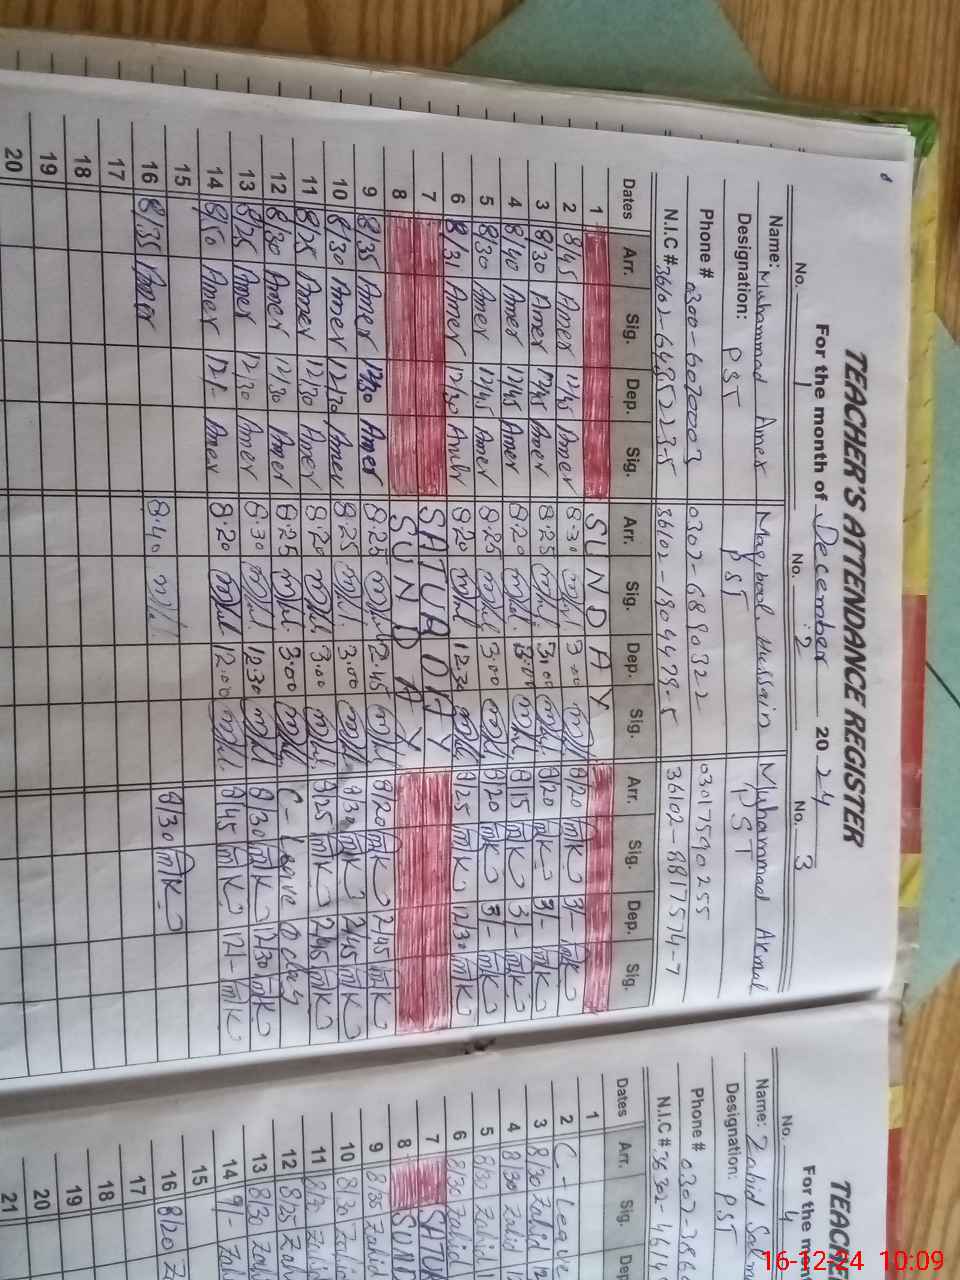 TEACHER'S ATTENDANCE REGISTER
For the month of December 2024
No. 1 No. 2 No. 3
Name: Muhammad Amer Maqbool Hussain Muhammad Akmal
Designation: PST PST PST
Phone # 0300-6070003 0307-6890322 03017590255
N.I.C # 36102-6485223-5 36102-1904479-5 36102-8817574-7
Dates Arr. Sig. Dep. Sig. Arr. Sig. Dep. Sig. Arr. Sig. Dep. Sig.
1 SUNDAY
2 8/45 Amer 12/45 Amer 8:30 3:00 8/20 MK 3/- MK
3 8/30 Amer 12/45 Amer 8:25 3:00 8/20 MK 3/- MK
4 8/40 Amer 12/45 Amer 8:20 3:00 8/15 MK 3/- MK
5 8/30 Amer 12/45 Amer 8:25 3:00 8/20 MK 3/- MK
6 8/31 Amer 12/30 Amer 8:20 12:30 8/25 MK 12/30 MK
7 SATURDAY
8 SUNDAY
9 8/35 Amer 12/30 Amer 8:25 2:45 8/20 MK 2/45 MK
10 8/30 Amer 12/30 Amer 8:25 3:00 8/30 MK 2/45 MK
11 8/25 Amer 12/30 Amer 8:20 3:00 8/25 MK 2/45 MK
12 8/30 Amer 12/30 Amer 8:25 3:00 C-Leave
13 8/25 Amer 12/30 Amer 8:30 12:30 8/30 MK 12/30 MK
14 8/50 Amer 12/- Amer 8:20 12:00 8/45 MK 12/- MK
15
16 8/35 Amer 8:40 8/30 MK
17
18
19
20
TEACHE
For the mont
No. 4
Name: Zahid
Designation: PST
Phone # 0307-386
N.I.C #
Dates Arr. Sig. Dep
1
2 C-Leave
3 8/30 Zahid 12
4 8/30 Zahid
5 8/30 Zahid
6 8/30 Zahid
7 SATU
8 SUN
9 8/35 Zahid
10 8/30
11
12 8/25
13 8/30
14 9/-
15
16 8/20
17
18
19
20
21
16-12-24 10:09